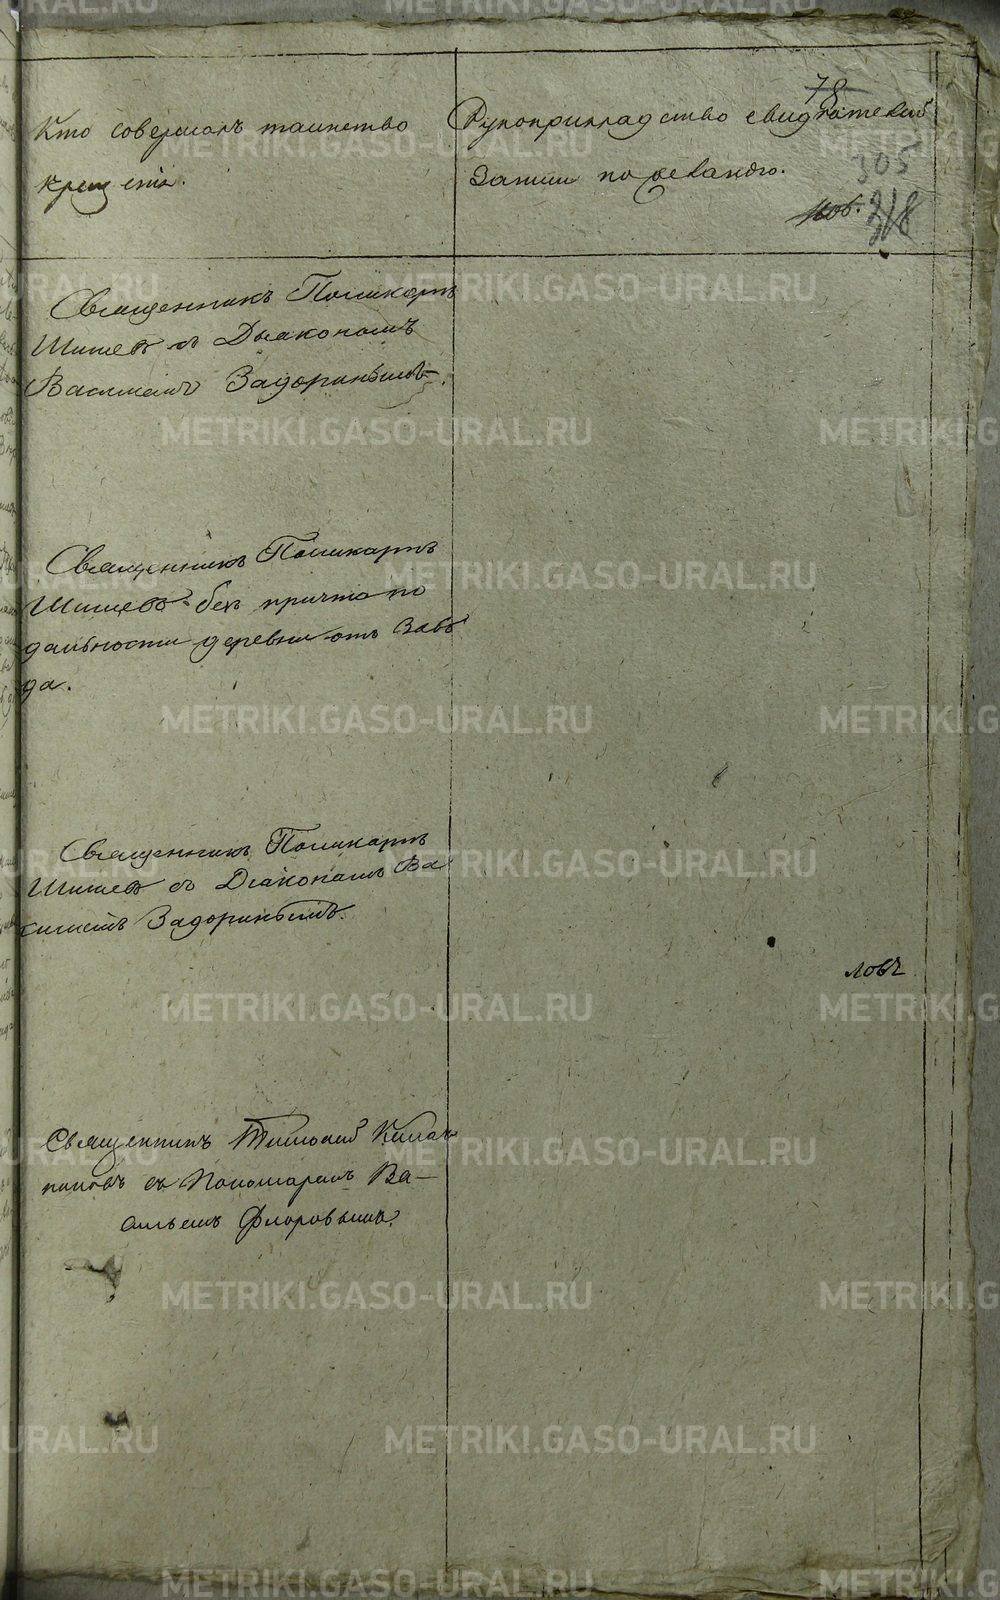 78
Кто совершалъ таинство
крещенія.
Рукоприкладство свидѣтелей
записи по желанію.
305
318
Священникъ Поликарпъ
Шишевъ съ Дьякономъ
Василіемъ Задоринымъ.
Священникъ Поликарпъ
Шишевъ безъ причта по
дальности деревни отъ Заво
да.
Священникъ Поликарпъ
Шишевъ съ Діакономъ Ва
силіемъ Задоринымъ.
ловъ
Священникъ Тимофей
съ Пономаремъ Ва-
сильемъ Флоровымъ.
METRIKI.GASO-URAL.RU